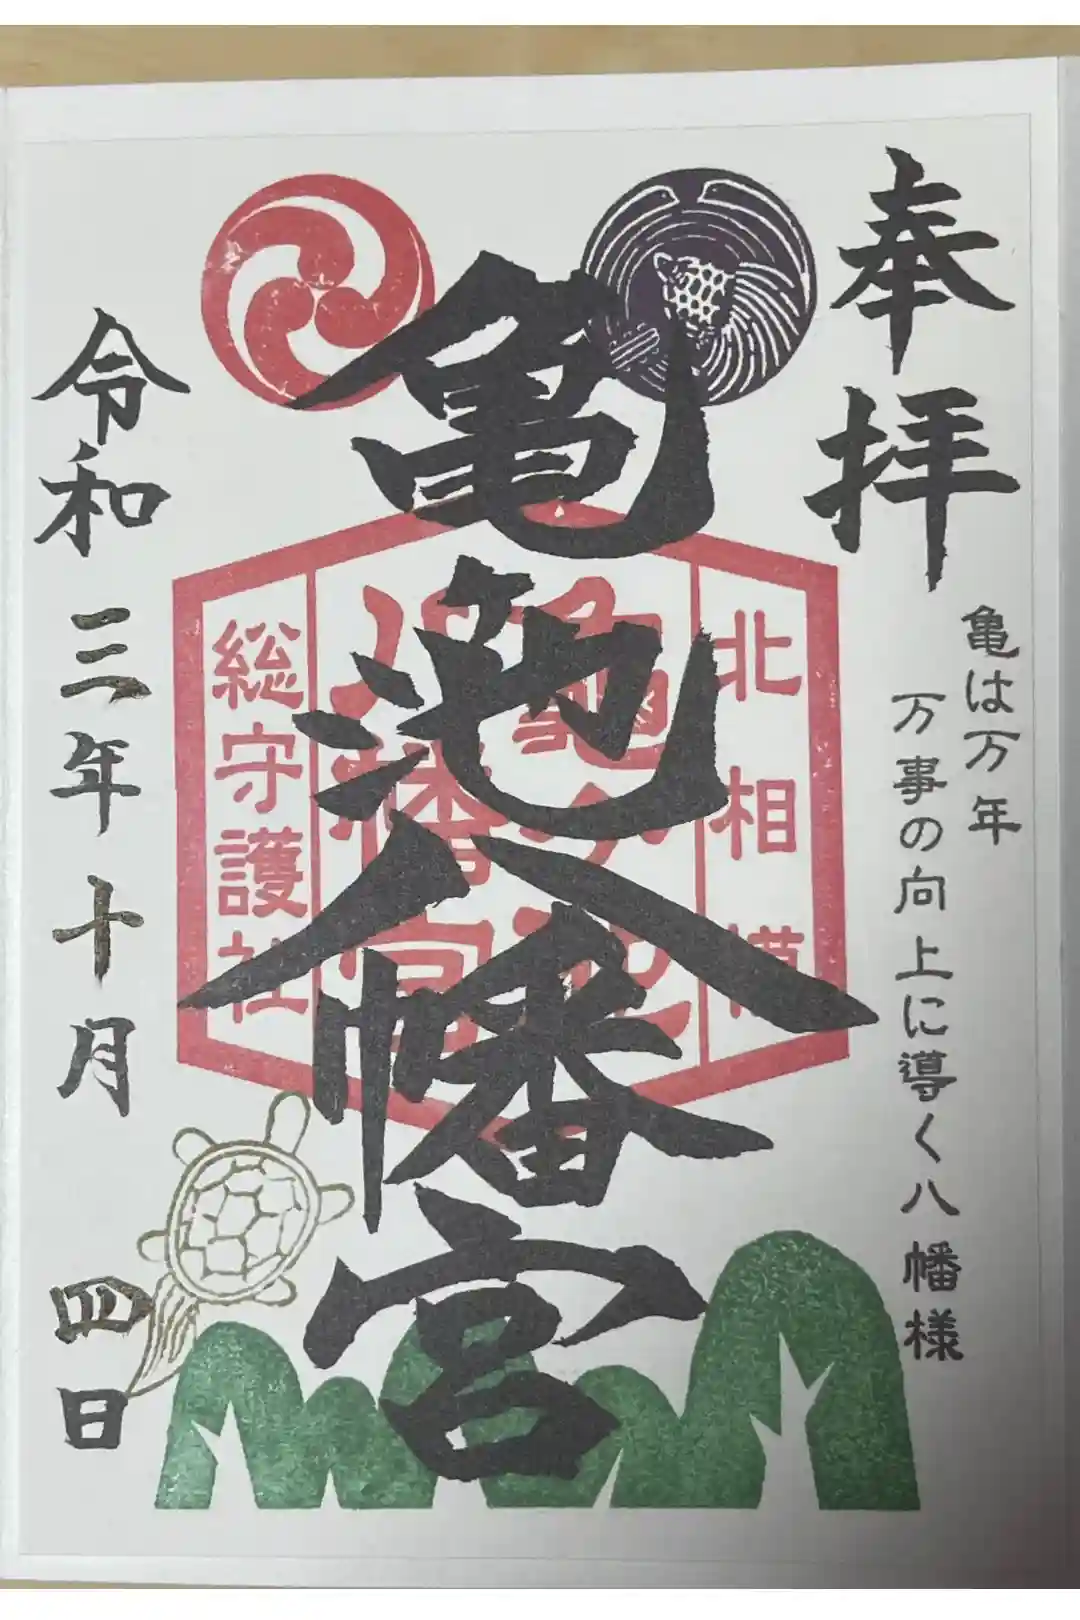 奉拝
亀は万年
万事の向上に導く八幡様
亀池八幡宮
北相模
亀ヶ池
八幡宮
総守護社
令和三年十月四日